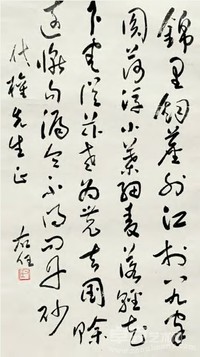 錦里烟塵外江村八九家
圓荷浮小葉細麥落輕花
卜宅從茲老為農去國賒
遠慚勾漏令不得問丹砂
代權先生正 右任